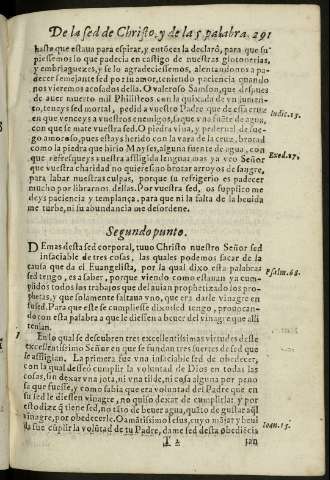 De la sed de Christo, y de la 5. palabra. 291
hasta que estaua para espirar, y entõces la declarô, para que su
piessemos lo que padecia en castigo de nuestras glotonerias,
y embriaguezes, y se lo agradeciessemos, alentandonos a pa
decer semejante sed por su amor, teniendo paciencia quando
nos vieremos acosados della. O valeroso Samson, que despues
de auer muerto mil Philisteos con la quixada de vn jumen-
to, teneys sed mortal, pedid a vuestro Padre que de essa cruz
en que venceys a vuestros enemigos, saque vna fuẽte de agua,
con que se mate vuestra sed. O piedra viua, y pedernal de fue-
go amoroso, pues estays herido con la vara de la cruz, brotad
como la piedra que hirio Moyses, alguna fuente de agua, con
que refresqueys vuestra afligida lengua: mas ya veo Señor
que vuestra charidad no quiere sino brotar arroyos de sangre,
para labar nuestras culpas, porque su refrigerio es padecer
mucho por librarnos dellas. Por vuestra sed, os suplico me
deys paciencia y templança, para que ni la falta de la beuida
me turbe, ni su abundancia me desordene.
Iudic. 15.
Exod. 17.
Segundo punto.
DEmas desta sed corporal, tuuo Christo nuestro Señor sed
insaciable de tres cosas, las quales podemos sacar de la
causa que da el Euangelista, por la qual dixo esta palabra:
sed tengo, es a saber, porque viendo como estauan ya cum-
plidos todos los trabajos que del auian prophetizado los pro-
phetas, y que solamente faltaua vno, que era darle vinagre en
su sed. Para que este se cumpliesse dixo: sed tengo, prouocan-
do con esta palabra a que le diessen a beuer del vinagre que alli
tenian.
Psalm. 68.
1 En lo qual se descubren tres excellentissimas virtudes deste
excellentissimo Señor en que se fundan tres suertes de sed que
le affligian. La primera fue vna insaciable sed de obedecer,
con la qual desseô cumplir la voluntad de Dios en todas las
cosas, sin dexar vna jota, ni vna tilde, ni cosa alguna por peno
sa que fuesse, y como sabia que era voluntad del Padre que en
su sed le diessen vinagre, no quiso dexar de cumplirla: y por
esto dize q̃ tiene sed, no tãto de beuer agua, quãto de gustar aq̃l
vinagre, por obedecerle. O amãtissimo Iesus, cuyo mãjar y beui
da fue cũplir la volũtad de tu Padre, dame sed desta obediẽcia
Ioan. 15.
T 2 tan